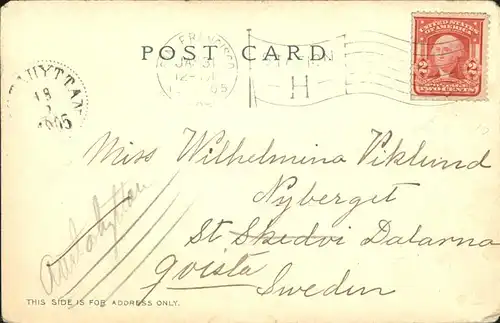 POST CARD
FRANCISCO
JAN 31
12- M
05
H
UNITED STATES OF AMERICA
2 2
TWO CENTS
HYTTAN
18
2
1905
Miss Wilhelmina Viklund
Nyberget
St. Skedvi Dalarna
Sweden
THIS SIDE IS FOR ADDRESS ONLY.